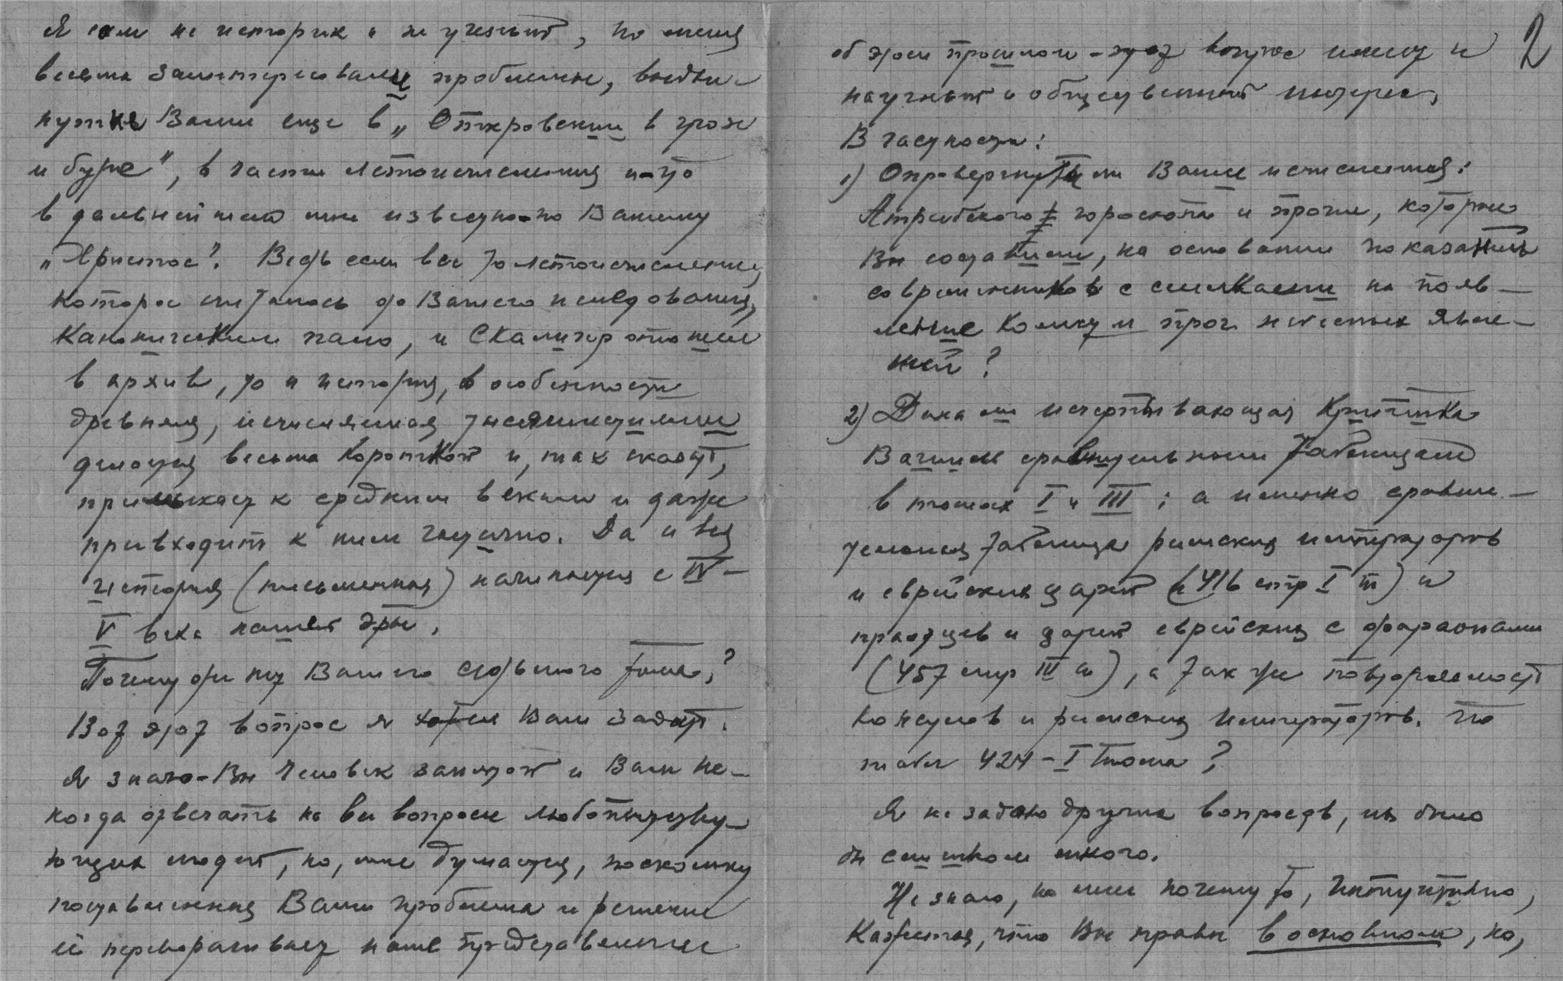 Я сам не историк и не ученый, но меня
весьма заинтересовали проблемы, выдви-
нутые Вами еще в „Откровении в грозе
и буре", в части летоисчисления и что
в дальнейшем мне известно по Вашему
„Христос". Ведь если все то летоисчисление,
которое считалось до Вашего исследования,
каноническим пало, и Скалигер отошел
в архив, то и история, в особенности
древняя, исчисляемая тысячилетиями
делается весьма короткой и, так сказать,
примыкает к средним векам и даже
привходит к ним частично. Да и вся
история (письменная) начинается с IV–
V века нашей эры.
Почему же нет Вашего седьмого тома?
Вот этот вопрос я хотел Вам задать.
Я знаю – Вы человек занятой и Вам не-
когда отвечать на все вопросы любопытству-
ющих людей, но, мне думается, поскольку
поставленная Вами проблема и решение
ее переворачивает наше представление
2
об этом прошлом – этот вопрос имеет и
научный и общественный интерес.
В частности:
1) Опровергнуты ли Ваши исчисления:
Атрибского гороскопа и прочие, которые
Вы составили, на основании показаний
современников с ссылками на появ-
ление комет и проч. небесных явле-
ний?
2) Дана ли исчерпывающая критика
Вашим сравнительным таблицам
в томах I и III; а именно сравни-
тельная таблица римских императоров
и еврейских царей (416 стр I т) и
праотцев и царей еврейских с фараонами
(457 стр III т), а так же повторяемость
консулов и римских императоров. По
табл 424 – I тома?
Я не задаю других вопросов, их было
бы слишком много.
Не знаю, но мне почему то, интуитивно,
кажется, что Вы правы в основном, но,